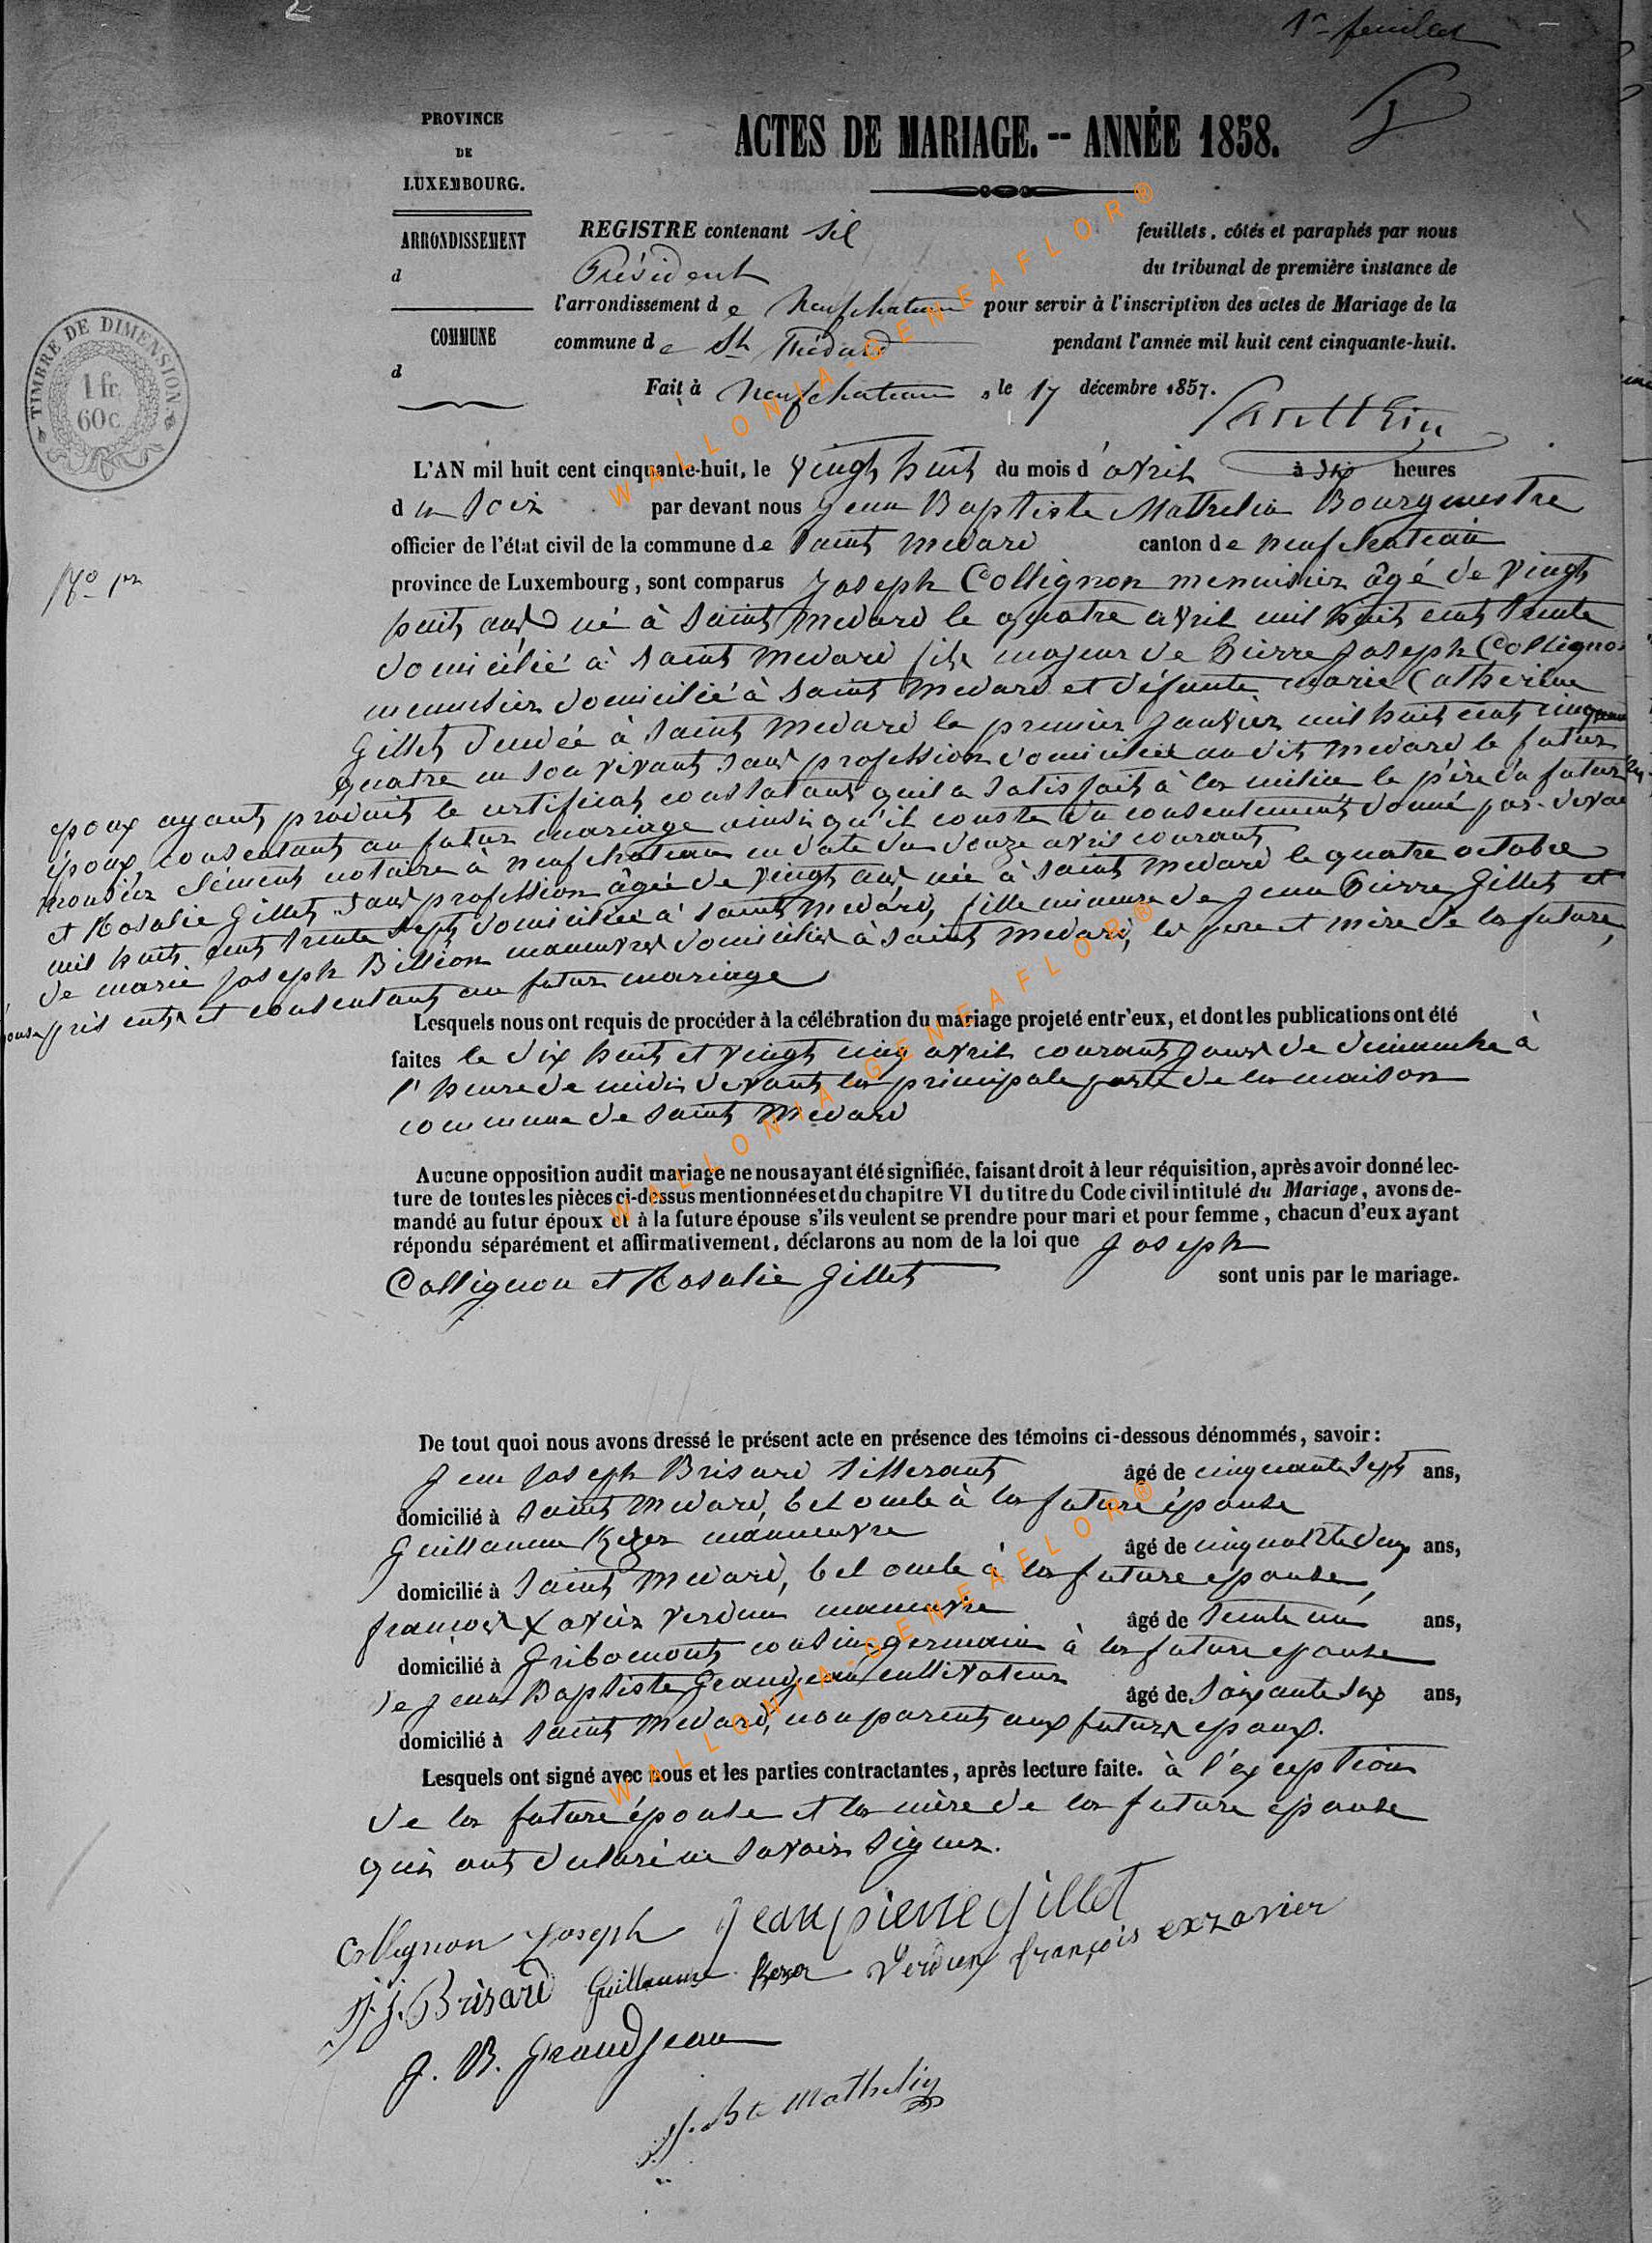 1r feuillet
PROVINCE
DE
LUXEMBOURG.
ACTES DE MARIAGE. -- ANNÉE 1858.
ARRONDISSEMENT
d
COMMUNE
d
TIMBRE DE DIMENSION
1 fr.
60 c.
REGISTRE contenant six feuillets, côtés et paraphés par nous
Président du tribunal de première instance de
l'arrondissement de Neufchateau pour servir à l'inscription des actes de Mariage de la
commune de St Médard pendant l'année mil huit cent cinquante-huit.
Fait à Neufchateau, le 17 décembre 1857.
No 1er
L'AN mil huit cent cinquante-huit, le vingt huit du mois d'avril à six heures
du soir par devant nous Jean Baptiste Mathelin Bourgmestre
officier de l'état civil de la commune de Saint Medard canton de neufchateau
province de Luxembourg, sont comparus Joseph Collignon menuisier âgé de vingt
huit ans né à Saint Medard le quatre avril mil huit cent trente
domicilié à Saint Medard fils majeur de Pierre Joseph Collignon
menuisier domicilié à Saint Medard et défunte marie Catherine
Gillet décédée à Saint Medard le premier Janvier mil huit cent cinquante
quatre en son vivant sans profession domiciliée au dit Medard le futur
epoux ayant produit le certificat constatant qu'il a satisfait à la milice le père du futur
époux, consentant au futur mariage ainsi qu'il conste du consentement donné par devant
monsieur Clément notaire à neufchateau en date du douze avril courant
et Rosalie Gillet sans profession âgée de vingt ans née à Saint Medard le quatre octobre
mil huit cent trente sept domiciliée à Saint Medard, fille mineure de Jean Pierre Gillet et
de marie Joseph Billion manœuvres domiciliés à Saint Medard, les pere et mère de la future,
épouse présents et consentant au futur mariage
Lesquels nous ont requis de procéder à la célébration du mariage projeté entr'eux, et dont les publications ont été
faites le dix huit et vingt cinq avril courant jours de dimanche à
l'heure de midi devant la principale porte de la maison
commune de Saint Medard
Aucune opposition audit mariage ne nous ayant été signifiée, faisant droit à leur réquisition, après avoir donné lec-
ture de toutes les pièces ci-dessus mentionnées et du chapitre VI du titre du Code civil intitulé du Mariage, avons de-
mandé au futur époux et à la future épouse s'ils veulent se prendre pour mari et pour femme, chacun d'eux ayant
répondu séparément et affirmativement, déclarons au nom de la loi que Joseph
Collignon et Rosalie Gillet sont unis par le mariage.
De tout quoi nous avons dressé le présent acte en présence des témoins ci-dessous dénommés, savoir:
Jean Joseph Brisard tisserant âgé de cinquante sept ans,
domicilié à Saint Medard, bel oncle à la future épouse
Guillaume Kezer manœuvre âgé de cinquante deux ans,
domicilié à Saint Medard, bel oncle à la future epouse,
françois Xavier Verdun manœuvre âgé de trente un ans,
domicilié à Gribomont cousin germain à la future epouse
de Jean Baptiste Grandjean cultivateur âgé de Soixante six ans,
domicilié à Saint Medard, non parent aux futurs epoux.
Lesquels ont signé avec nous et les parties contractantes, après lecture faite. à l'exception
de la future épouse et la mère de la future épouse
qui ont déclaré ne savoir signer.
Collignon Joseph Jean pierre Gillet
J. J. Brisard Guillaume Kezer Verdun françois exzavier
J. B. Grandjean
J. Bte Mathelin
WALLONIA-GENEAFLOR®
WALLONIA-GENEAFLOR®
WALLONIA-GENEAFLOR®